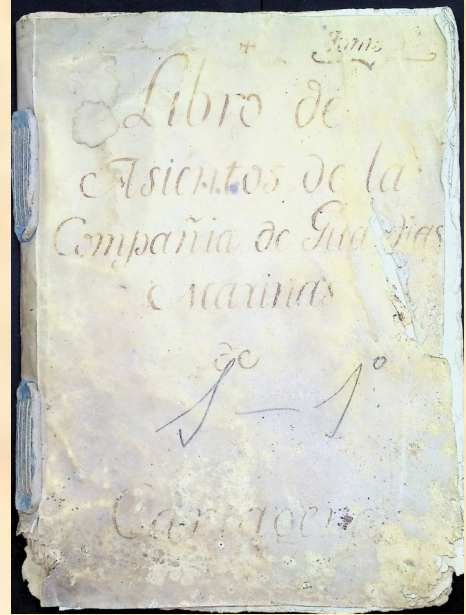 +
Libro de
Asientos de la
Compañia de Guardias
Marinas
de
1º
Cartagena